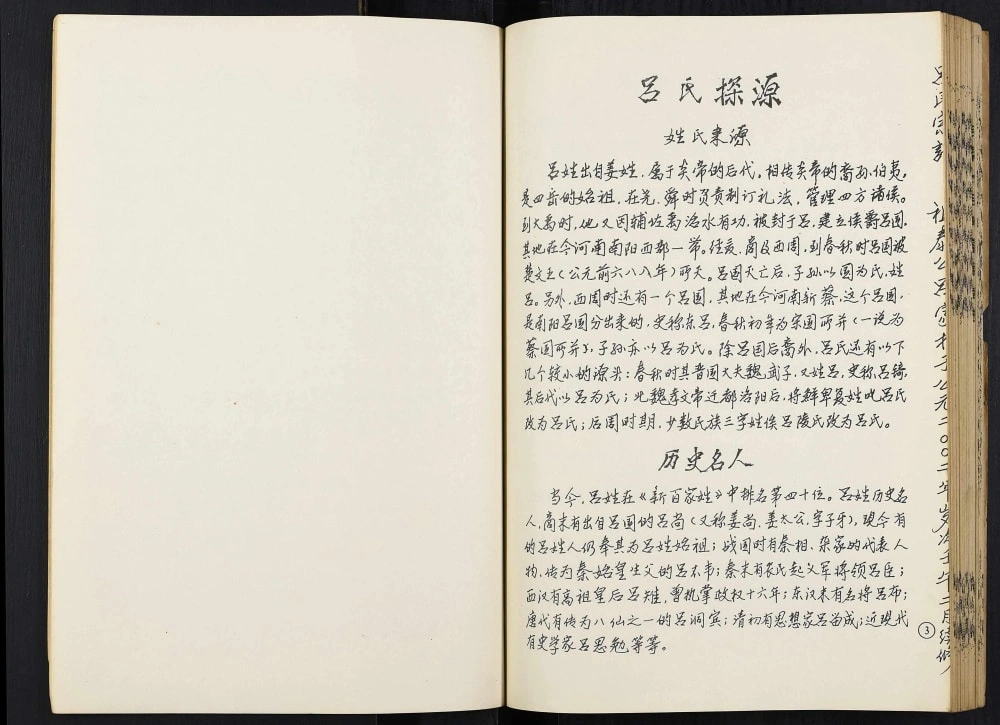 吕氏探源
姓氏来源
吕姓出自姜姓，属于炎帝的后代。相传炎帝的裔孙伯夷，
是四岳的始祖，在尧、舜时负责制订礼法，管理四方诸侯。
到大禹时，他又因辅佐禹治水有功，被封于吕，建立侯爵吕国，
其地在今河南南阳西部一带。经夏、商及西周，到春秋时吕国被
楚文王（公元前六八八年）所灭。吕国灭亡后，子孙以国为氏，姓
吕。另外，西周时还有一个吕国，其地在今河南新蔡，这个吕国，
是南阳吕国分出来的，史称东吕，春秋初年为宋国所并（一说为
蔡国所并），子孙亦以吕为氏。除吕国后裔外，吕氏还有以下
几个较小的源头：春秋时其晋国大夫魏武子，又姓吕，史称吕锜，
其后代以吕为氏；北魏孝文帝迁都洛阳后，将鲜卑复姓叱吕氏
改为吕氏；后周时期，少数民族三字姓俟吕陵氏改为吕氏。
历史名人
当今，吕姓在《新百家姓》中排名第四十位。吕姓历史名
人，商末有出自吕国的吕尚（又称姜尚、姜太公，字子牙），现今有
的吕姓人仍奉其为吕姓始祖；战国时有秦相、杂家的代表人
物，传为秦始皇生父的吕不韦；秦末有农民起义军将领吕臣；
西汉有高祖皇后吕雉，曾执掌政权十六年；东汉末有名将吕布；
唐代有传为八仙之一的吕洞宾；清初有思想家吕留成；近现代
有史学家吕思勉等等。
3
吕氏宗 祖泰公吕 于公元二〇〇二年岁次壬午二月续修